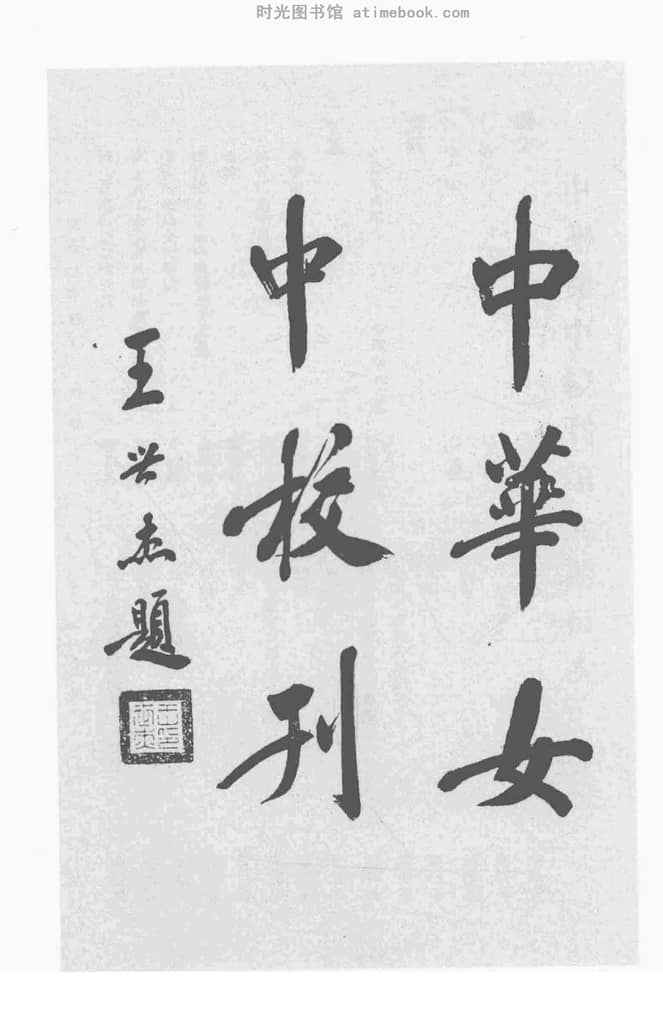 时光图书馆 atimebook.com
中華女
中校刊
王世杰題